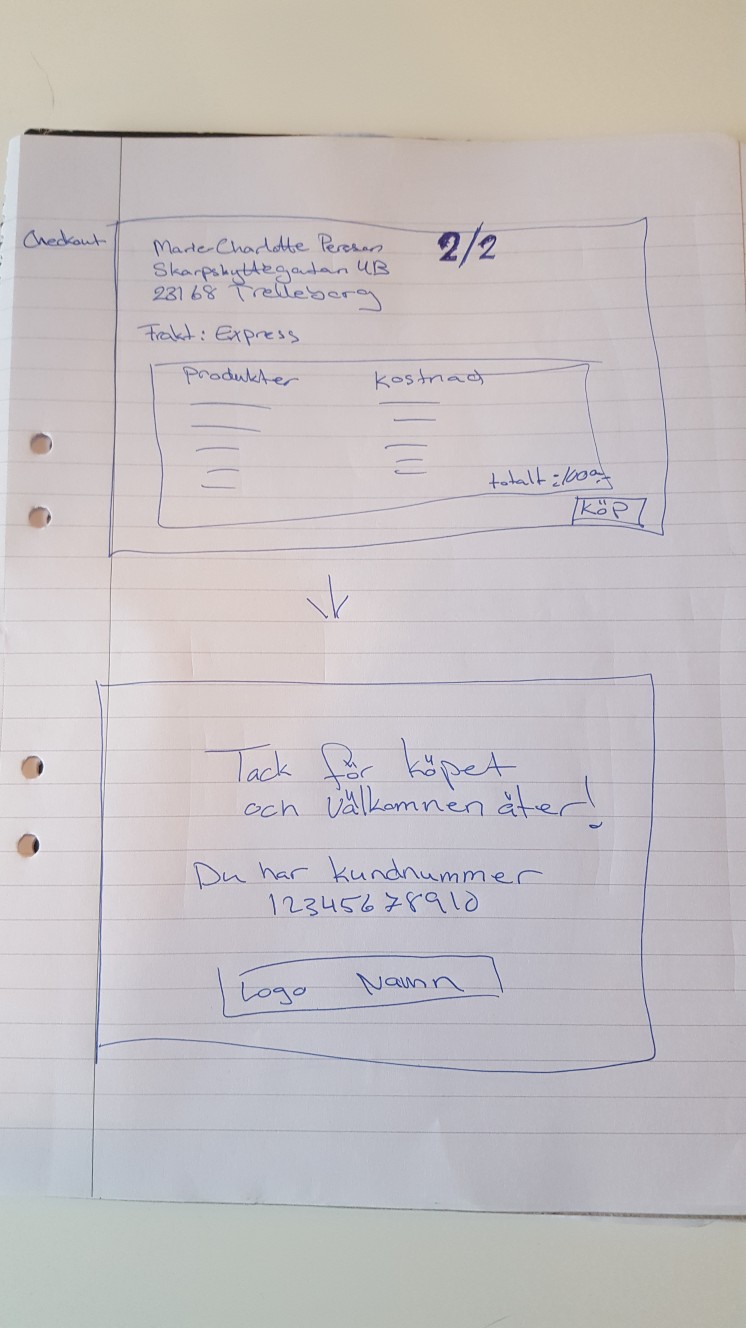 Checkout
Marie-Charlotte
2/2
4B
23168 Trelleborg
Frakt: Express
Produkter Kostnad
totalt:
Köp
Tack för köpet
och Välkomnen åter!
Du har kundnummer
12345678910
Logo Namn